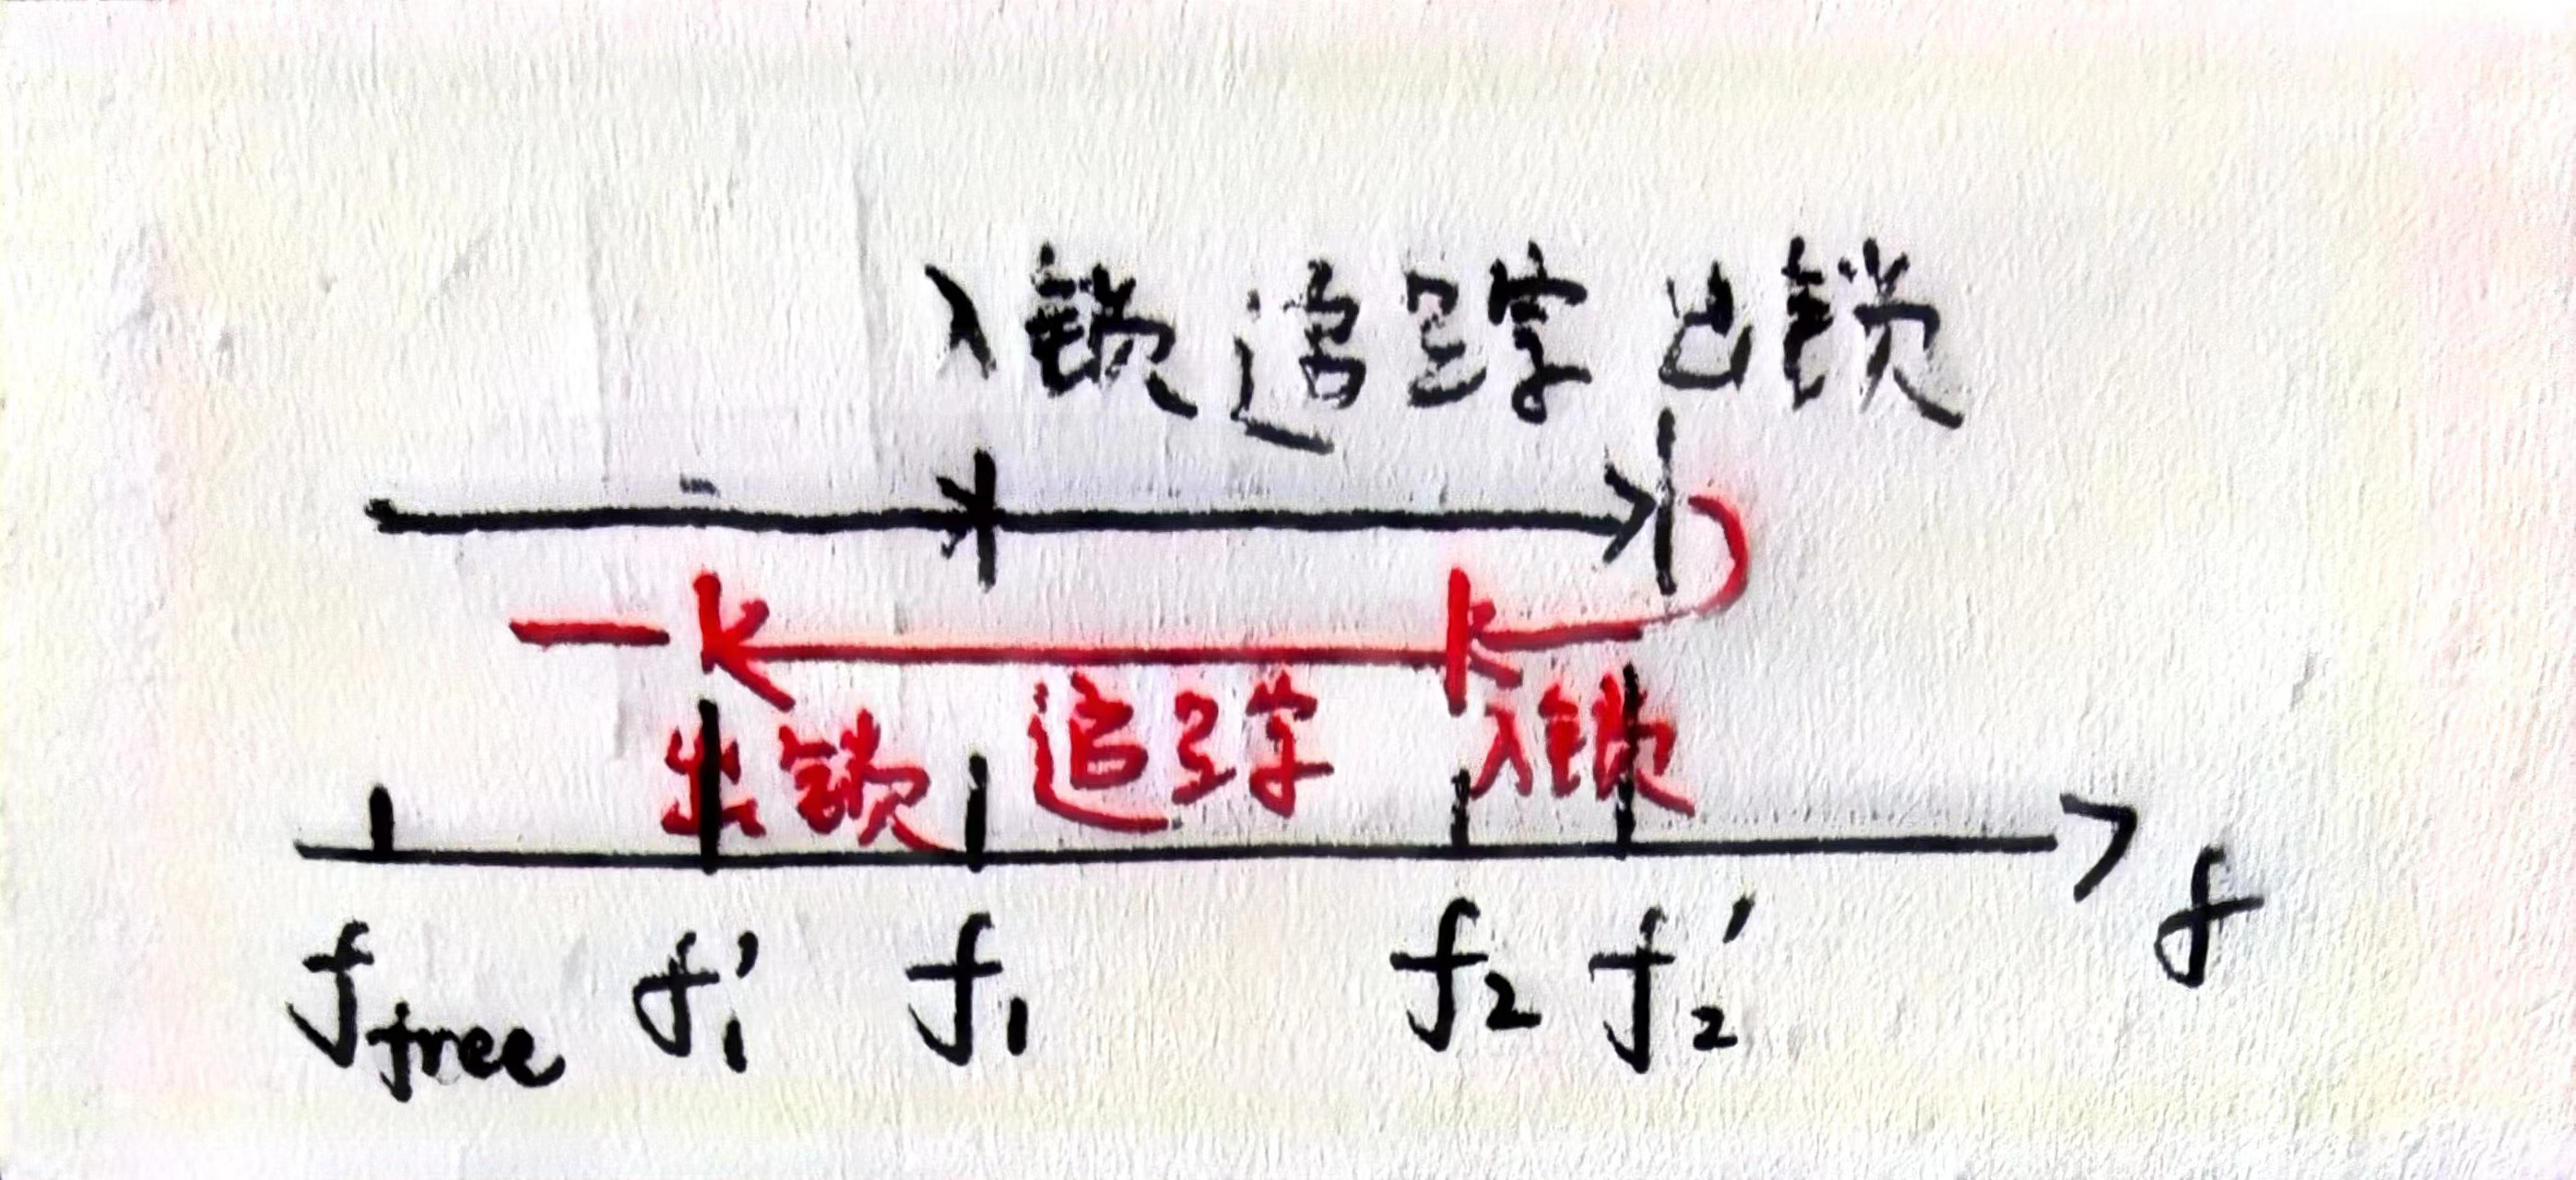 入锁 追踪 出锁
出锁 追踪 入锁
f_free f₁' f₁ f₂ f₂' f